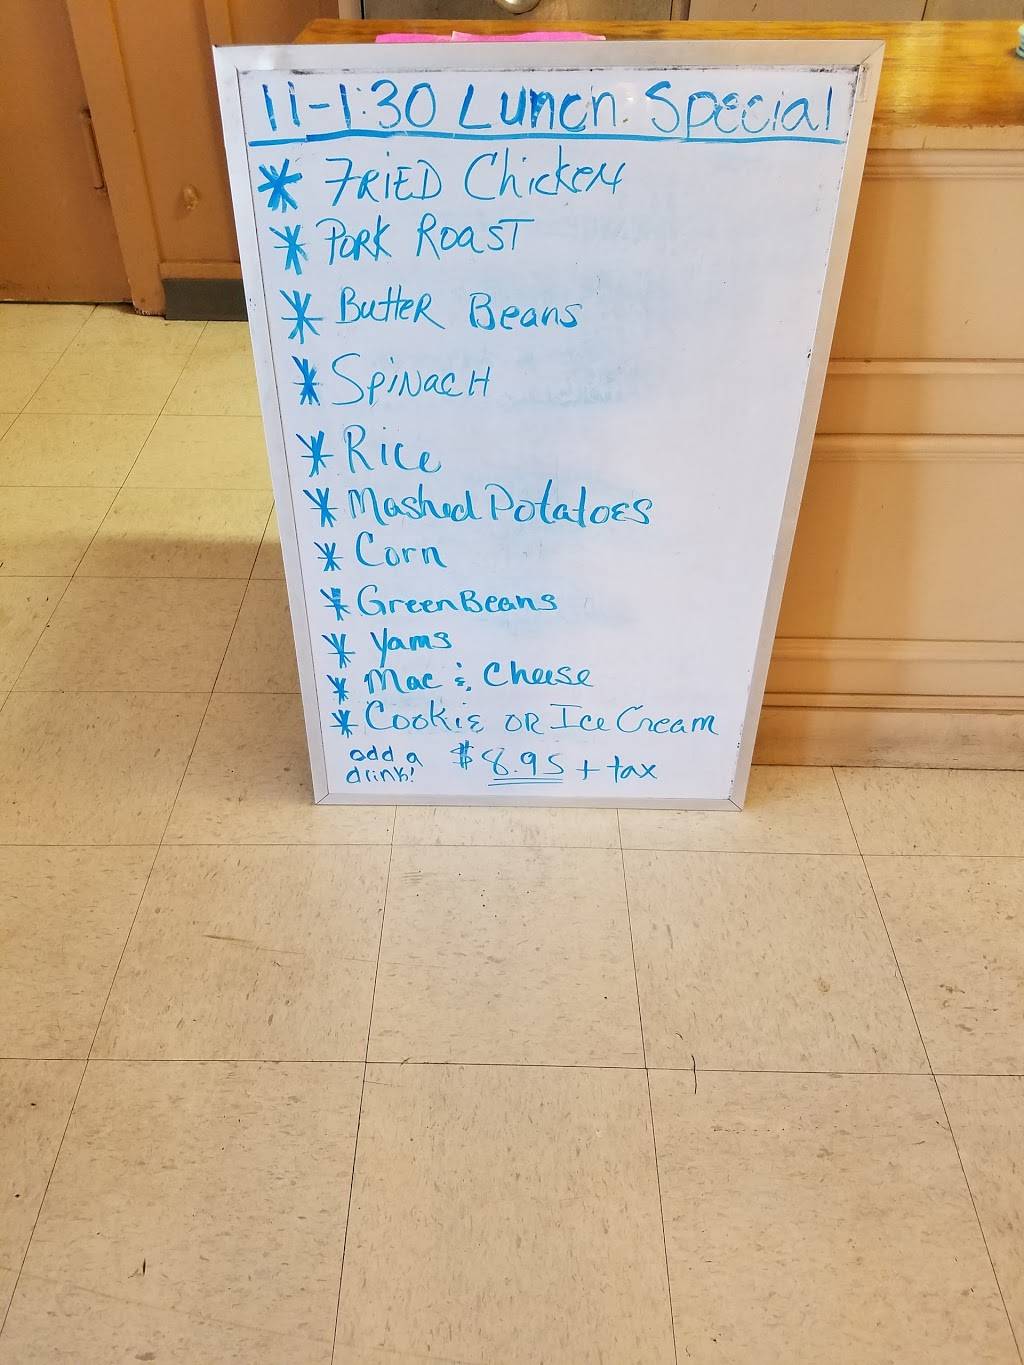 11-1:30 Lunch Special
* FRiED Chicken
* PORK ROAST
* Butter Beans
* SpiNacH
* Rice
* Mashed Potatoes
* Corn
* Green Beans
* Yams
* Mac & Cheese
* Cookie OR Ice Cream
add a drink! $8.95 + tax